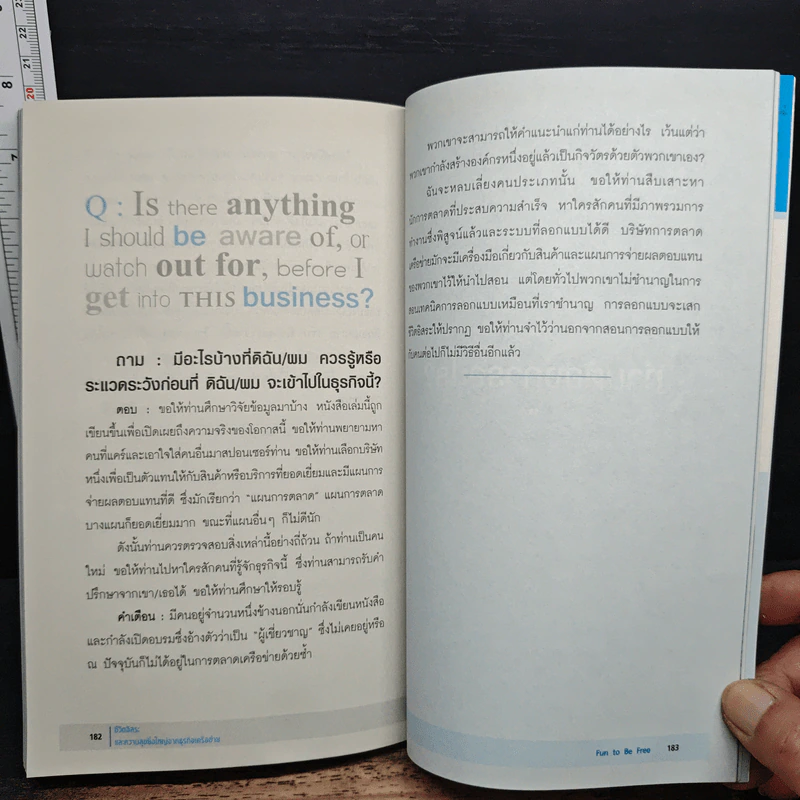 Q : Is there anything
I should be aware of, or
watch out for, before I
get into THIS business?
ถาม : มีอะไรบ้างที่ดิฉัน/ผม ควรรู้หรือ
ระแวดระวังก่อนที่ ดิฉัน/ผม จะเข้าไปในธุรกิจนี้?
ตอบ : ขอให้ท่านศึกษาวิจัยข้อมูลมาบ้าง หนังสือเล่มนี้ถูก
เขียนขึ้นเพื่อเปิดเผยถึงความจริงของโอกาสนี้ ขอให้ท่านพยายามหา
คนที่แคร์และเอาใจใส่คนอื่นมาสปอนเซอร์ท่าน ขอให้ท่านเลือกบริษัท
หนึ่งเพื่อเป็นตัวแทนให้กับสินค้าหรือบริการที่ยอดเยี่ยมและมีแผนการ
จ่ายผลตอบแทนที่ดี ซึ่งมักเรียกว่า "แผนการตลาด" แผนการตลาด
บางแผนก็ยอดเยี่ยมมาก ขณะที่แผนอื่นๆ ก็ไม่ดีนัก
ดังนั้นท่านควรตรวจสอบสิ่งเหล่านี้อย่างถี่ถ้วน ถ้าท่านเป็นคน
ใหม่ ขอให้ท่านไปหาใครสักคนที่รู้จักธุรกิจนี้ ซึ่งท่านสามารถรับคำ
ปรึกษาจากเขา/เธอได้ ขอให้ท่านศึกษาให้รอบรู้
คำเตือน : มีคนอยู่จำนวนหนึ่งข้างนอกนั่นกำลังเขียนหนังสือ
และกำลังเปิดอบรมซึ่งอ้างตัวว่าเป็น "ผู้เชี่ยวชาญ" ซึ่งไม่เคยอยู่หรือ
ณ ปัจจุบันก็ไม่ได้อยู่ในการตลาดเครือข่ายด้วยซ้ำ
182
ชีวิตอิสระ
และความสุขยิ่งใหญ่จากธุรกิจเครือข่าย
พวกเขาจะสามารถให้คำแนะนำแก่ท่านได้อย่างไร เว้นแต่ว่า
พวกเขากำลังสร้างองค์กรหนึ่งอยู่แล้วเป็นกิจวัตรด้วยตัวพวกเขาเอง?
ฉันจะหลบเลี่ยงคนประเภทนั้น ขอให้ท่านสืบเสาะหา
นักการตลาดที่ประสบความสำเร็จ หาใครสักคนที่มีภาพรวมการ
ทำงานซึ่งพิสูจน์แล้วและระบบที่ลอกแบบได้ดี บริษัทการตลาด
เครือข่ายมักจะมีเครื่องมือเกี่ยวกับสินค้าและแผนการจ่ายผลตอบแทน
ของพวกเขาไว้ให้นำไปสอน แต่โดยทั่วไปพวกเขาไม่ชำนาญในการ
สอนเทคนิคการลอกแบบเหมือนที่เราชำนาญ การลอกแบบจะเสก
ชีวิตอิสระให้ปรากฏ ขอให้ท่านจำไว้ว่านอกจากสอนการลอกแบบให้
กับคนต่อไปก็ไม่มีวิธีอื่นอีกแล้ว
Fun to Be Free 183
8
7
23
22
21
20